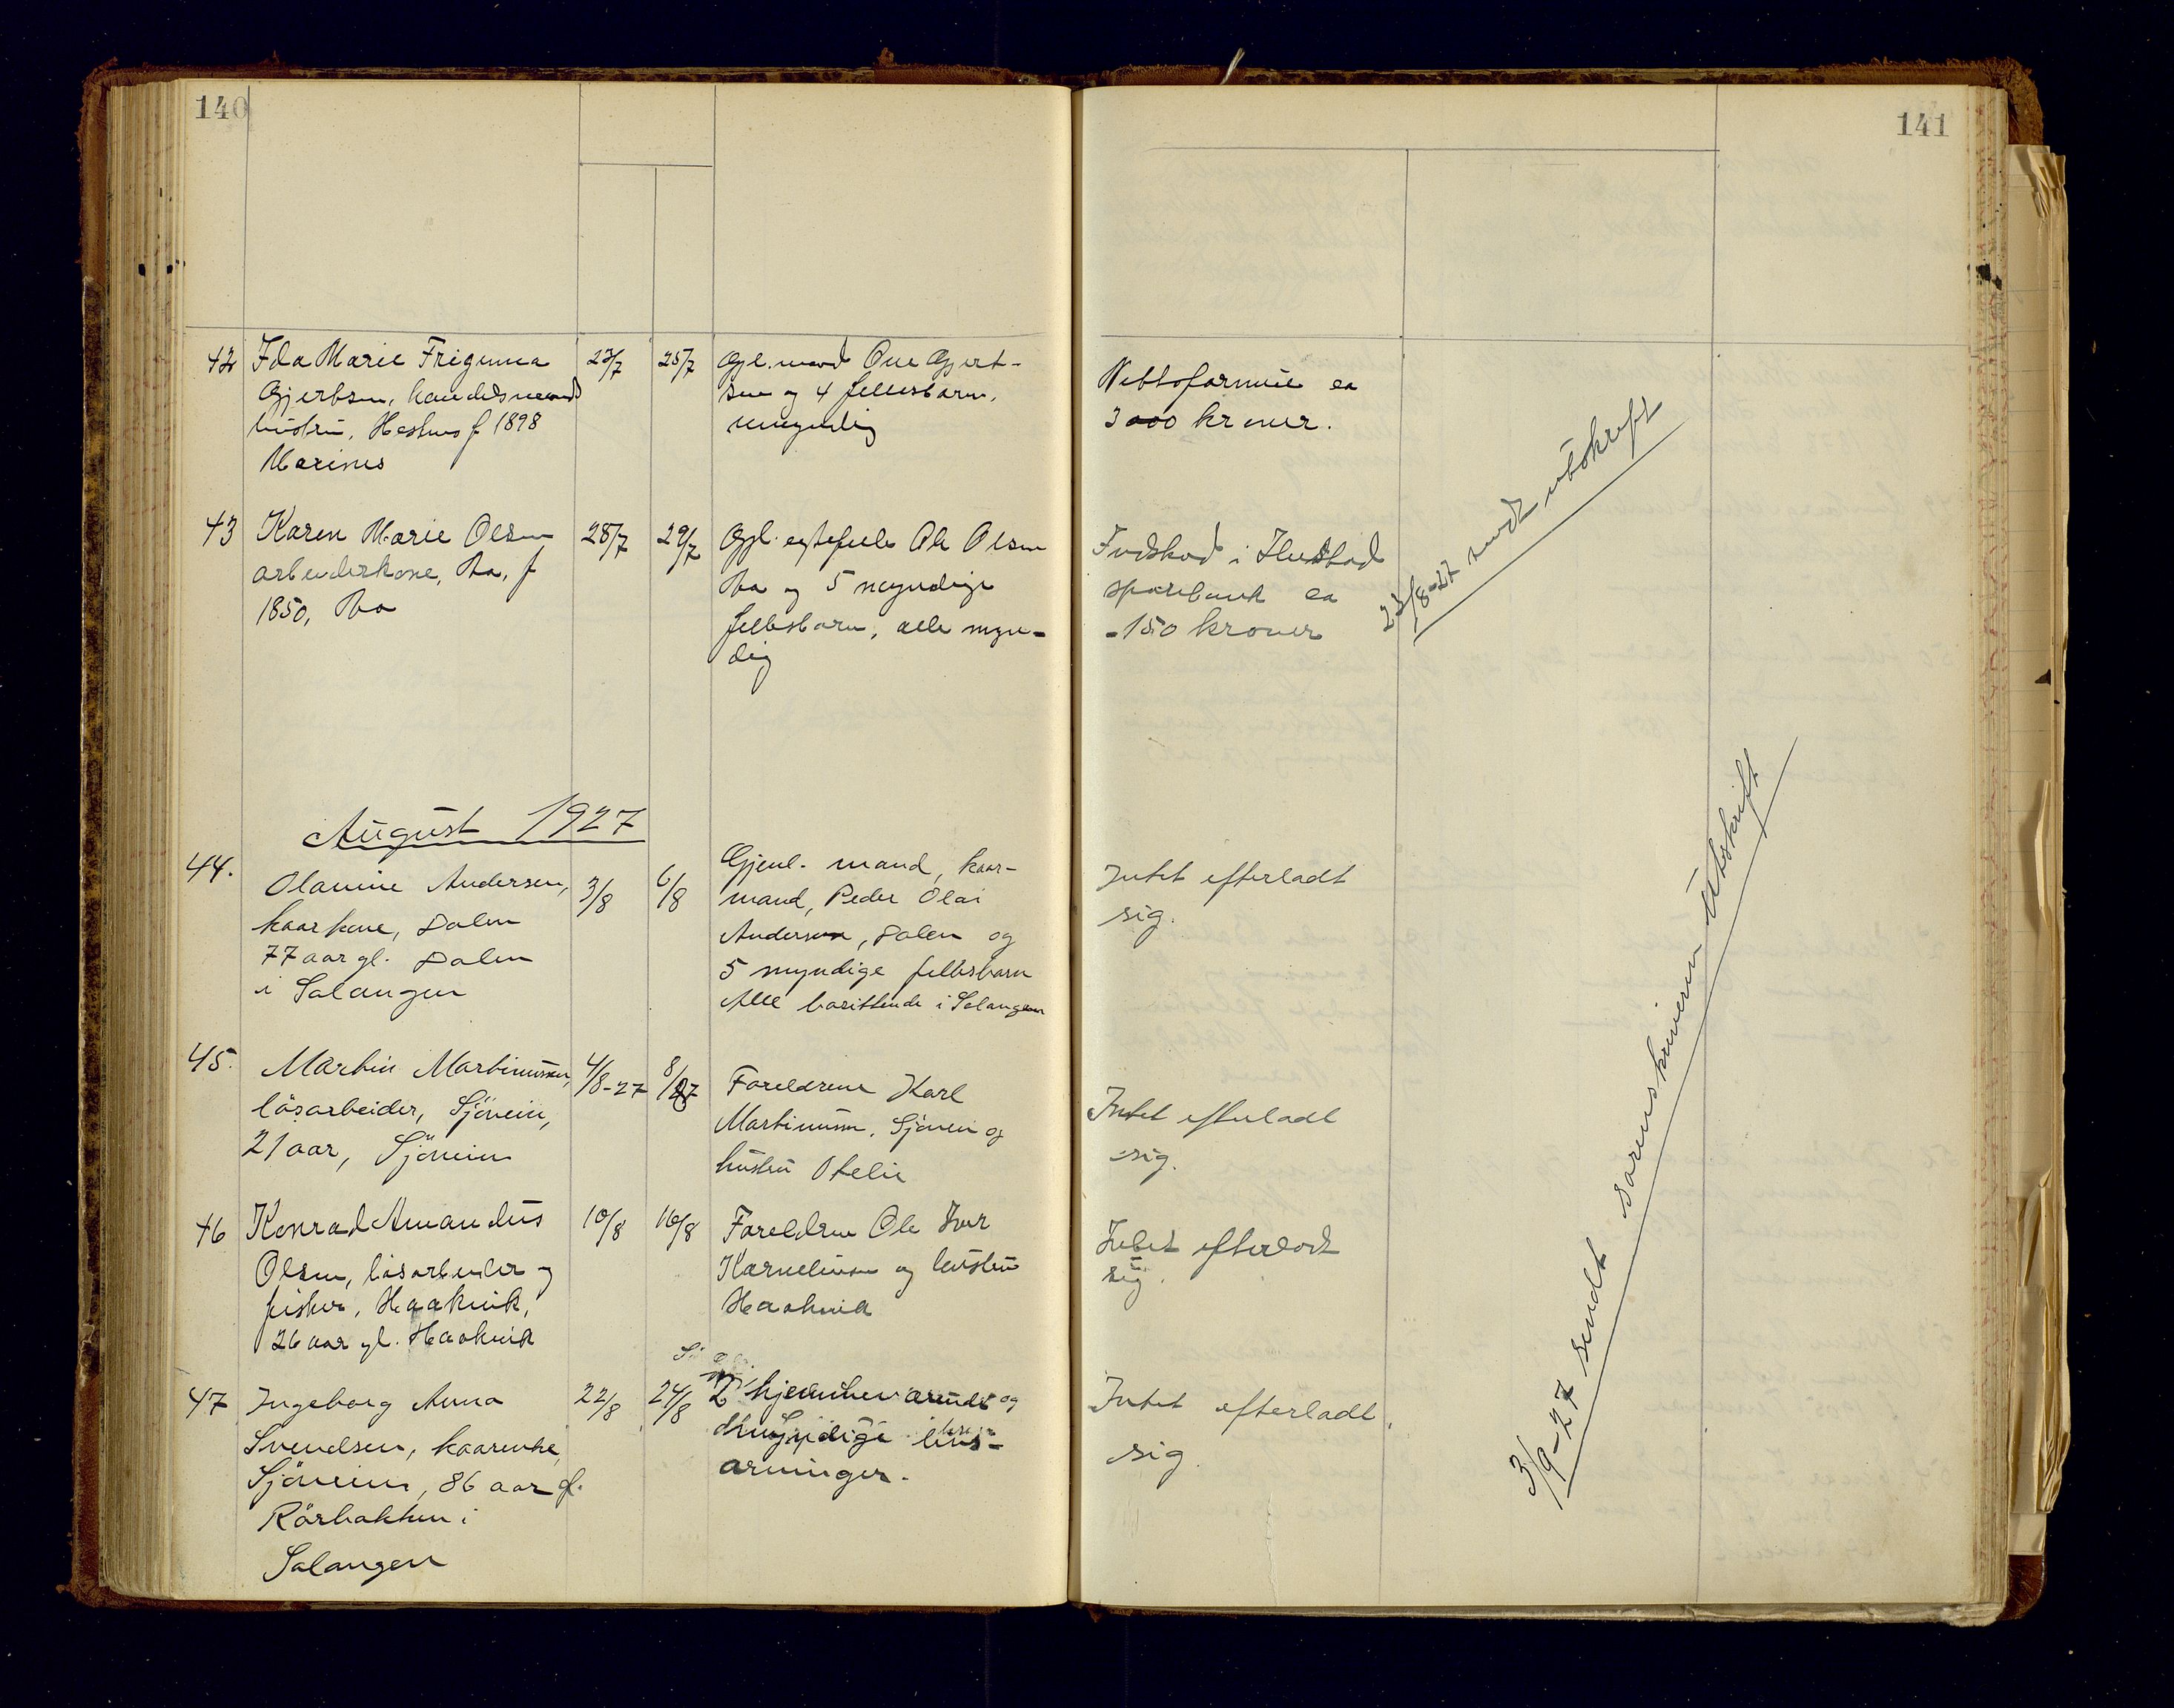 140
42 Ida Marie Frigunna 23/7 25/7 Gjl. mand Ove Gjert-
Gjertsen, handelsmands sen og 4 fellesbarn,
hustru, f 1898 umyndig
43 Karen Marie Olsen 28/7 29/7 Gjl. egtefelle Ole Olsen
arbeiderkone, Raa, f Raa og 5 myndige
1850, Raa fellesbarn, alle myn-
dig
August 1927
44. Olamine Andersen, 3/8 6/8 Gjenl. mand, kaar-
kaarkone, Dalen mand, Peder Olai
77 aar gl. Dalen Andersen, Dalen og
i Salangen 5 myndige fellesbarn
Alle bosittende i Salangen
45. Martin Martinussen, 4/8-27 8/8 27 Foreldrene Karl
lösarbeider, Sjövein, Martinussen, Sjövein og
21 aar, Sjövein hustru Otelie
46 Konrad Amandus 10/8 16/8 Foreldrene Ole Iver
Olsen, lösarbeider og Korneliussen og hustru
fisker, Haakvik, Haakvik
26 aar gl. Haakvik
47 Ingeborg Anna 22/8 24/8 2 hjemmeværende og
Svendsen, kaarenke, myndige livs-
Sjövein, 86 aar gl. arvinger.
Rörbakken i
Salangen
141
Nettoformue ca
3000 kroner.
Indskud i Ibestad
sparebank ca
150 kroner
23/8-27 sendt utskrift
Intet efterladt
sig.
Intet efterladt
sig.
Intet efterladt
sig.
Intet efterladt
sig.
3/9-27 sendt sorenskriveren utskrift